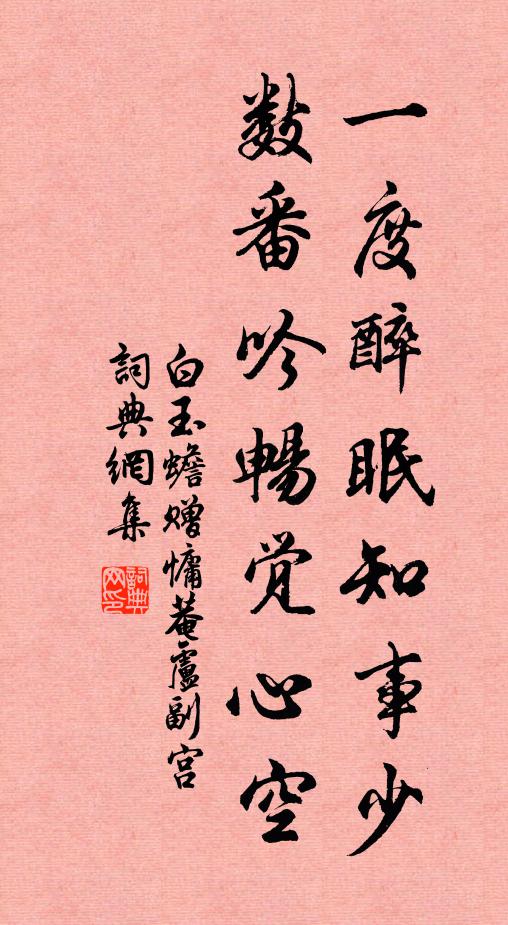 一度醉眠知事少
数番吟暢覚心空
白玉蟾赠慵菴盧副宫
詞典網集
詞典网印